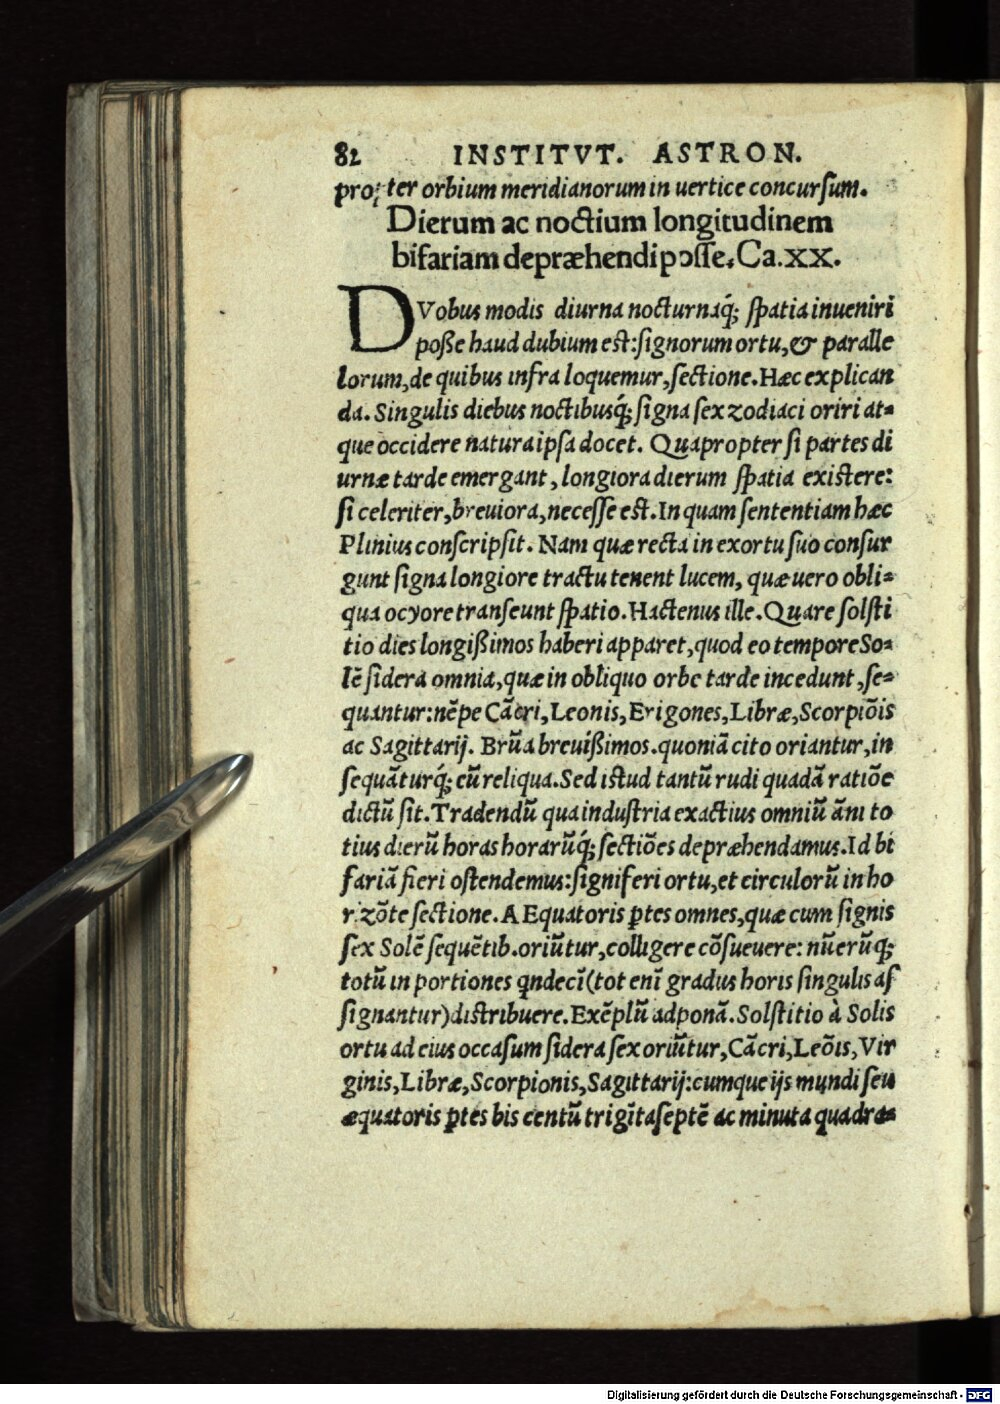 82 INSTITVT. ASTRON.
propter orbium meridianorum in uertice concursum.
Dierum ac noctium longitudinem
bifariam depræhendi posse. Ca.XX.
DVobus modis diurna nocturnaq́; spatia inueniri
posse haud dubium est: signorum ortu, & paralle
lorum, de quibus infra loquemur, sectione. Hæc explican
da. Singulis diebus noctibusq́; signa sex zodiaci oriri at=
que occidere natura ipsa docet. Quapropter si partes di
urnæ tarde emergant, longiora dierum spatia existere:
si celeriter, breuiora, necesse est. In quam sententiam hæc
Plinius conscripsit. Nam quæ recta in exortu suo consur
gunt signa longiore tractu tenent lucem, quæ uero obli=
qua ocyore transeunt spatio. Hactenus ille. Quare solsti
tio dies longissimos haberi apparet, quod eo tempore So=
lẽ sidera omnia, quæ in obliquo orbe tarde incedunt, se=
quantur: nẽpe Cãcri, Leonis, Erigones, Libræ, Scorpiõis
ac Sagittarij. Brũa breuissimos. quoniã cito oriantur, in
sequãturq́; eũ reliqua. Sed istud tantũ rudi quadã ratiõe
dictũ sit. Tradendũ qua industria exactius omniũ ãni to
tius dierũ horas horarũq́; sectiões depræhendamus. Id bi
fariã fieri ostendemus: signiferi ortu, et circulorũ in ho
rizõte sectione. AEquatoris ꝑtes omnes, quæ cum signis
sex Solẽ sequẽtib. oriũtur, colligere cõsueuere: nũerũq;
totũ in portiones qndecĩ (tot enĩ gradus horis singulis as
signantur) distribuere. Exẽplũ adponã. Solstitio à Solis
ortu ad eius occasum sidera sex oriũtur, Cãcri, Leõis, Vir
ginis, Libræ, Scorpionis, Sagittarij: cumque ijs mundi seu
æquatoris ꝑtes bis centũ trigĩta septẽ ac minuta quadra=
Digitalisierung gefördert durch die Deutsche Forschungsgemeinschaft - DFG